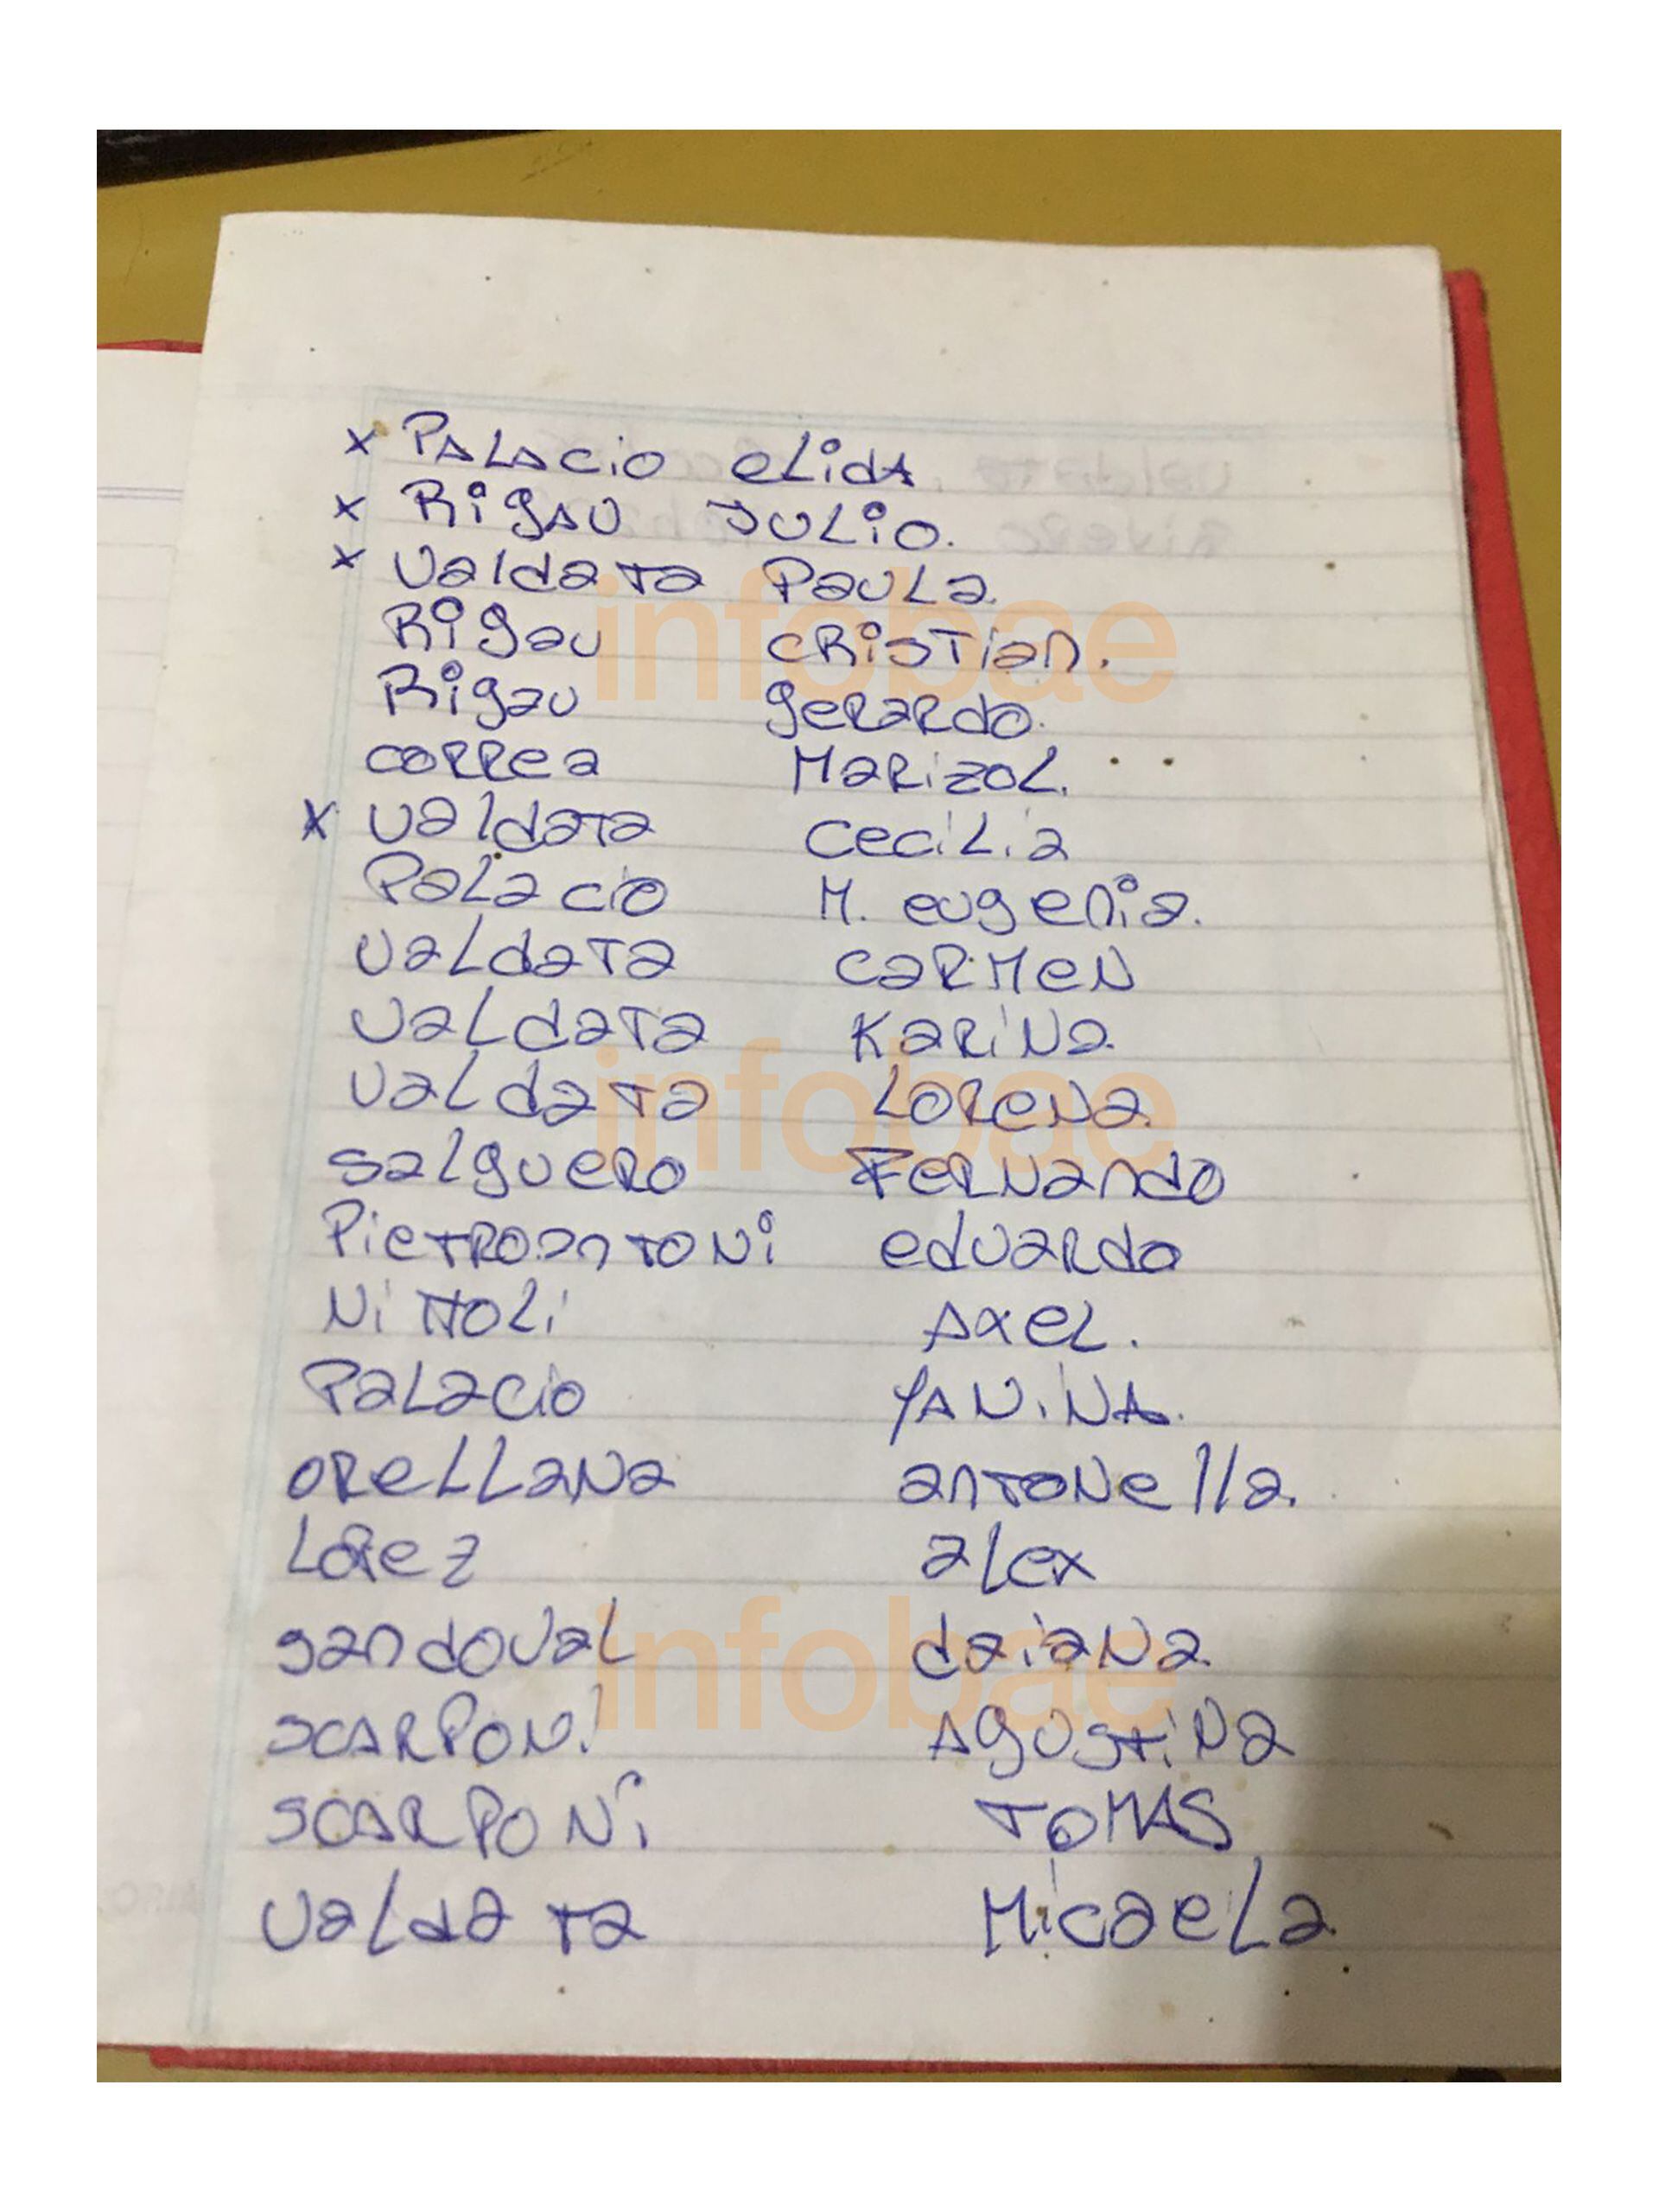 x PALACIO eLidA.
x RigAU JULio.
x Valdata Paula.
Rigau CRISTian.
Rigau gerardo.
correa Marizol.
x Valdata Cecilia
Palacio M. eugenia.
Valdata Carmen
Valdata Karina
Valdata Lorena.
salguero Fernando
Pietroantoni eduardo
Nittoli Axel.
Palacio YANINA.
orellana antonella.
alex
sandoval daiana
SCARPONi Agustina
SCARPONi TOMAS
Valdata Micaela
infobae
infobae
infobae